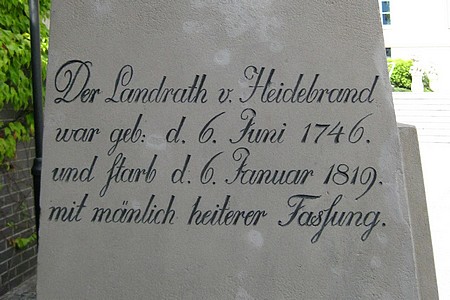 Der Landrath v. Heidebrand
war geb: d. 6. Juni 1746.
und ſtarb d. 6. Januar 1819.
mit mänlich heiterer Faſſung.